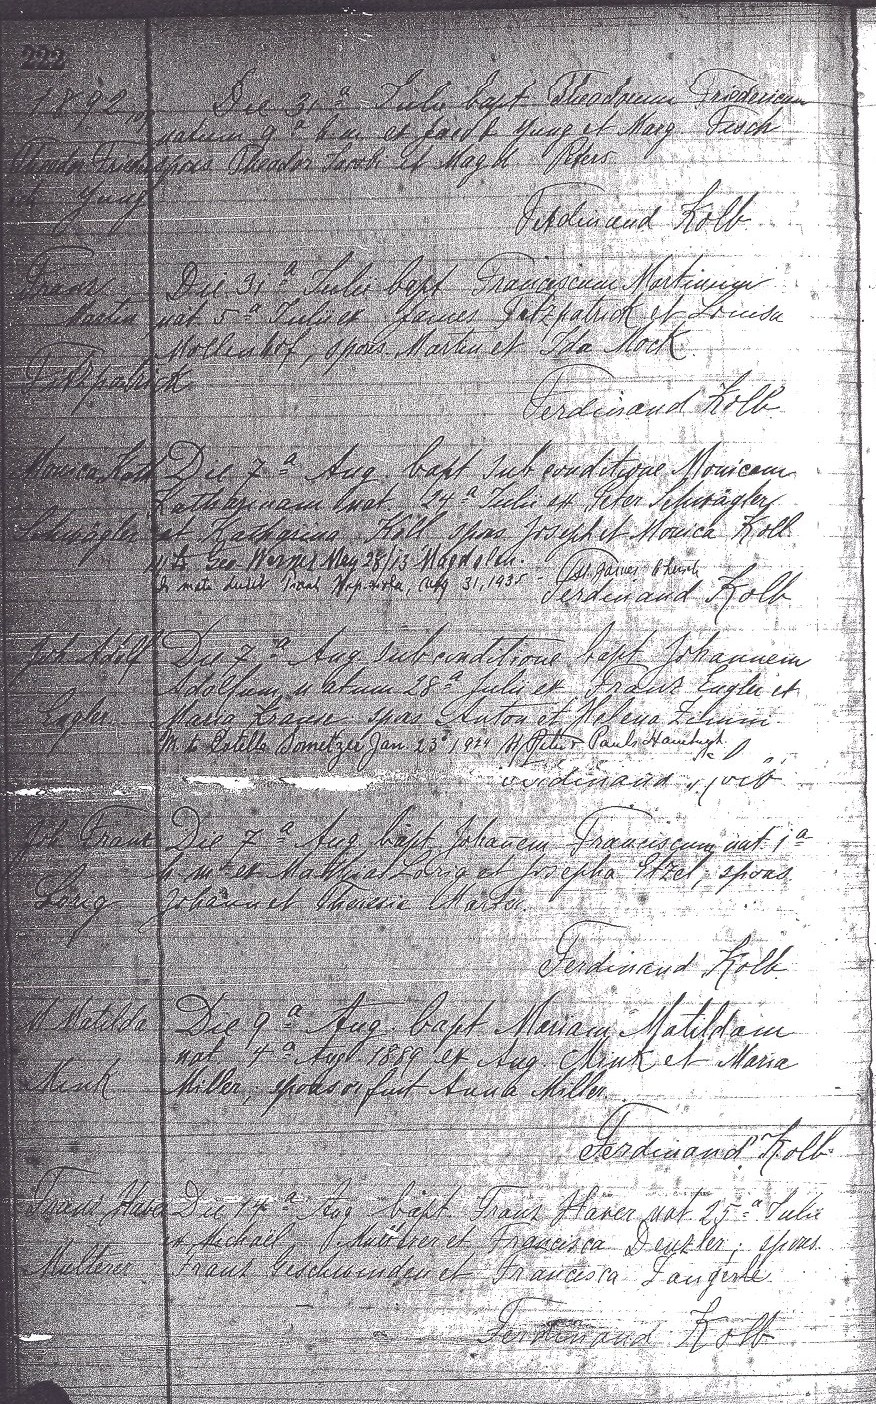 222
1892
Die 31ª Julii bapt Theodorum Fridericum
natum 9ª h.m. ex Jacob Jung et Marg. Fisch
spons Theodor Jacobi et Magd Peters
Theodor Friedr
Jung
Ferdinand Kolb
Franz
Martin
Fitzpatrick
Die 31ª Julii bapt Franciscum Martinum
nat 5ª Julii ex James Fitzpatrick et Louisa
Mollenhof, spons. Martin et Ida Mock.
Ferdinand Kolb
Monica Kath
Schwägler
Die 7ª Aug. bapt sub conditione Monicam
Katharinam nat. 24ª Julii ex Peter Schwägler
et Katharina Köll spons Joseph et Monica Koll.
M. to Geo Werner May 28/13 Magdalen.
Aug 31, 1935 - St. James Church
Ferdinand Kolb
Joh Adolf
Engler
Die 7ª Aug sub conditione bapt Johannem
Adolfum, natum 28ª Julii ex Franz Engler et
Maria Krause spons Anton et Helena
M. to Sometzer Jan. 23 1924 Peter & Pauls
Ferdinand Kolb
Joh Franz
Lorig
Die 7ª Aug bapt Johanem Franciscum nat 1ª
h. m. ex Mathias Lorig et Josepha Etzel, spons.
Johann et Theresia
Ferdinand Kolb.
M Matilda
Mink
Die 9ª Aug. bapt Mariam Matildam
nat 4ª Aug. 1889 ex Aug. Mink et Maria
Miller, sponsor fuit Anna Miller.
Ferdinand Kolb.
Franz Xaver
Multerer
Die 14ª Aug bapt Franz Xaver nat 25ª Julii
ex Michael Multerer et Francisca Denzler; spons.
Franz Geschwinder et Francisca Zangerle.
Ferdinand Kolb